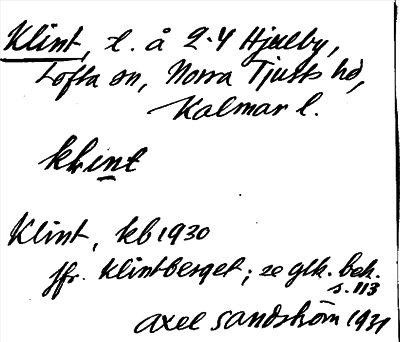 Klint, l. å 2.4 Hjälby,
Lofta sn, Norra Tjusts hd,
Kalmar l.
klint
Klint, kb 1930
jfr. Klintberget; se glk. bek.
s. 113
Axel Sandström 1931